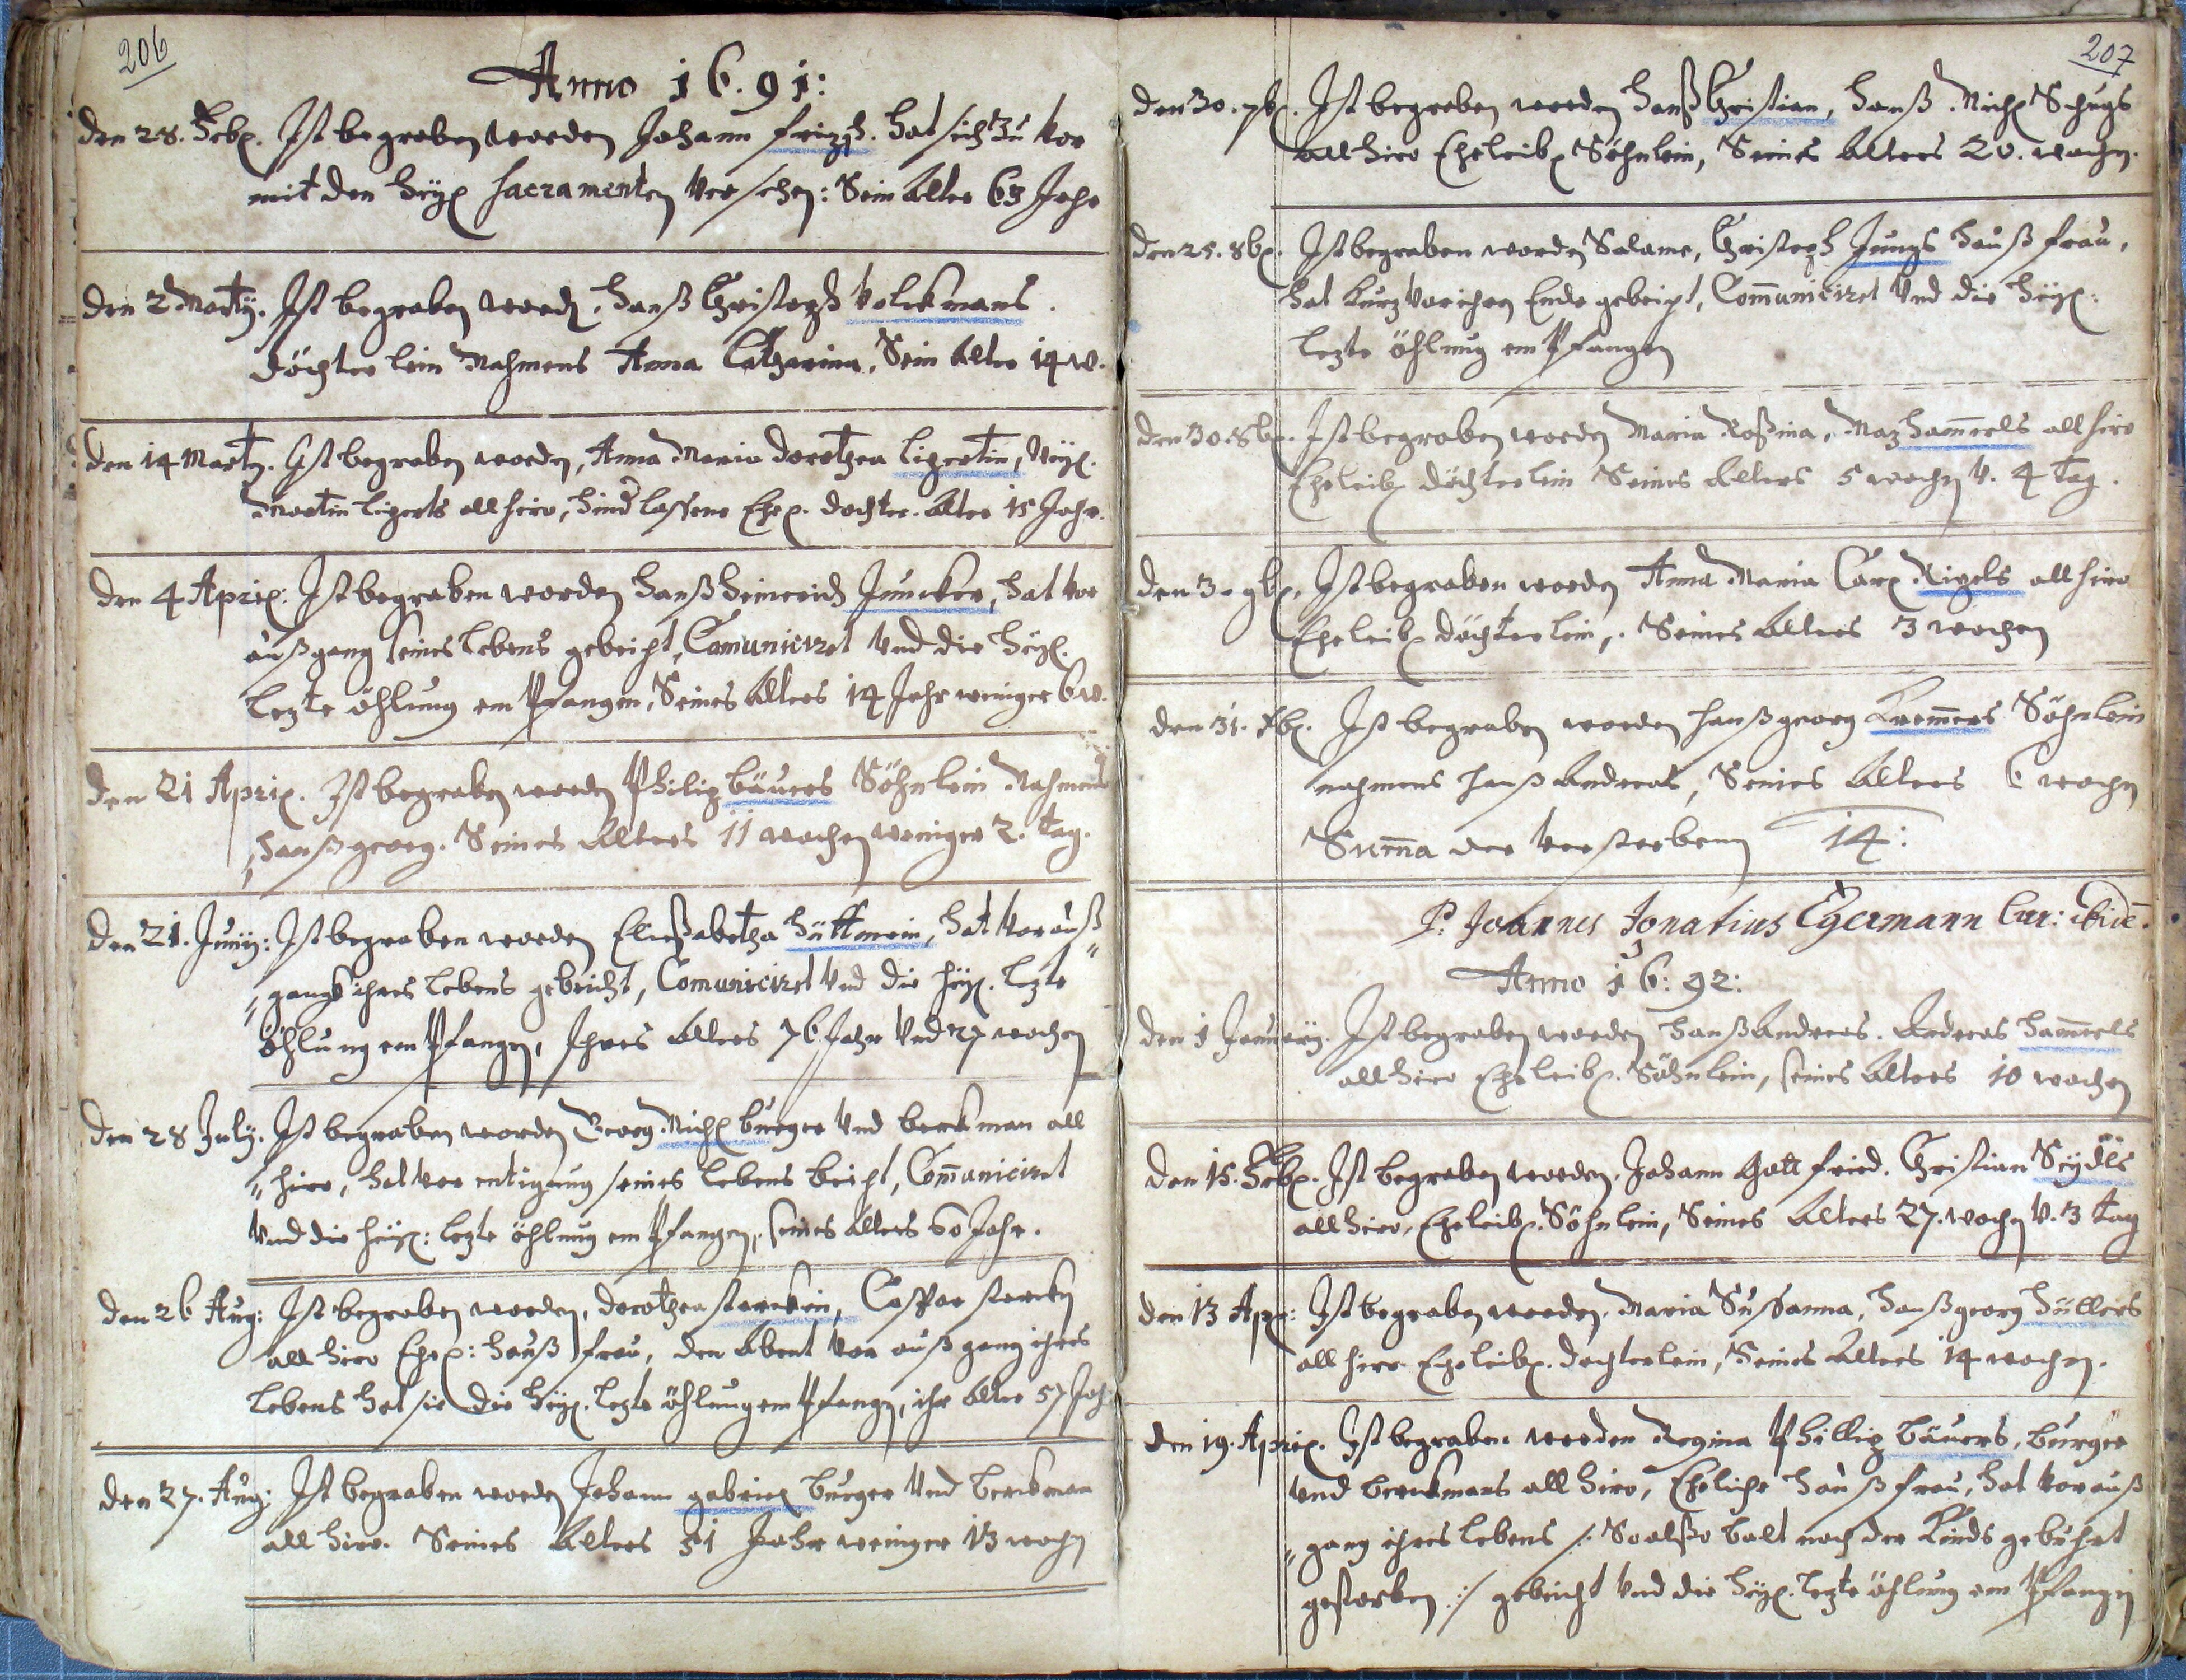 206
Anno 1691:
den 28. Feb. Ist begraben worden Johann frizsch. hat sich zu vor
mit den heyl Sacramenten versehen: Sein Alter 63 Jahr
den 2 Marty. Ist begraben word. hanß Christoph Volckmans.
döchterlein Nahmens Anna Catharina, Sein Alter 14 w.
den 14 Marty. Ist begraben worden, Anna Maria dorothea
Martin allhier, hind lassene Ehel. dochter. Alter 15 Jahr.
den 4 April. Ist begraben worden hanß heinrich Juncker, hat vor
außgang seines lebens gebeicht, Comuniciret Und die heyl.
lezte öhlung empfangen, Seines Alters 14 Jahr weniger 6 w.
den 21 April. Ist begraben worden Philip bäuers Söhnlein Nahmens
hanß georg. Seines Alters 11 wochen weniger 2. tag.
den 21. Juny: Ist begraben worden Elisabetha hüttmein, hat vor auß
gang ihres lebens gebeicht, Comuniciret Und die heyl. lezte
öhlung empfangen, Ihres Alters 76 Jahr Und 27 wochen
den 28 July. Ist begraben worden Georg Michl burger Und berckman all
hier, hat vor entigung seines lebens beicht, Comuniciret
Und die heyl: lezte öhlung empfangen, seines Alters 60 Jahr.
den 26 Aug: Ist begraben worden, dorothea starckin, Caspar starcken
allhier Ehel: hauß frau, den Abent vor außgang ihres
lebens hat sie die heyl. lezte öhlung empfangen, ihr Alter 57 Jah
den 27. Aug: Ist begraben worden Johann gabriel burger Und berckman
allhier. Seines Alters 31 Jahr weniger 13 wochen
207
den 30. 7b. Ist begraben worden hanß Christian, hanß Michl Schugs
allhier Eheleibl Söhnlein, Seines Alters 20. wochen.
den 25. 8b. Ist begraben worden Salome, Christoph Jungs hauß frau,
hat kurz vor ihren Ende gebeicht, Communiciret Und die heyl:
lezte öhlung empfangen
den 30. 8b. Ist begraben worden Maria Roßina, Maz ham̄erls allhier
Eheleibl döchterlein Seines Alters 5 wochen v. 4 tag.
den 3. 9b. Ist begraben worden Anna Maria Carl Rigels allhier
Eheleibl döchterlein, Seines Alters 3 wochen
den 31. Xb. Ist begraben worden hanß georg Krem̄ers Söhnlein
nahmens hanß Andreas, Seines Alters 6 wochen
Sum̄a der verstorbenen 14:
P: Joannes Ignatius Egermann Cur: ibid.
Anno 16:92:
den 1 January. Ist begraben worden hanß Andreas. Andreas ham̄erls
allhier Eheleibl. Söhnlein, seines Alters 10 wochen
den 15. Feb. Ist begraben worden. Johann Gottfried. Christian Seydls
allhier, Eheleibl. Söhnlein, Seines Alters 27. wochen v. 3 tag
den 13 Apr: Ist begraben worden. Maria Sussanna, hanß georg hüllers
allhier Eheleibl. dochterlein, Seines Alters 14 wochen.
den 19. April. Ist begraben worden Regina Phillip bäuers, burger
Und berckmans allhier, Ehliche hauß frau, hat vor auß
gang ihres lebens /: So alßo balt nach der Kinds gebuhrt
gestorben :/ gebeicht Und die heyl. lezte öhlung empfangen